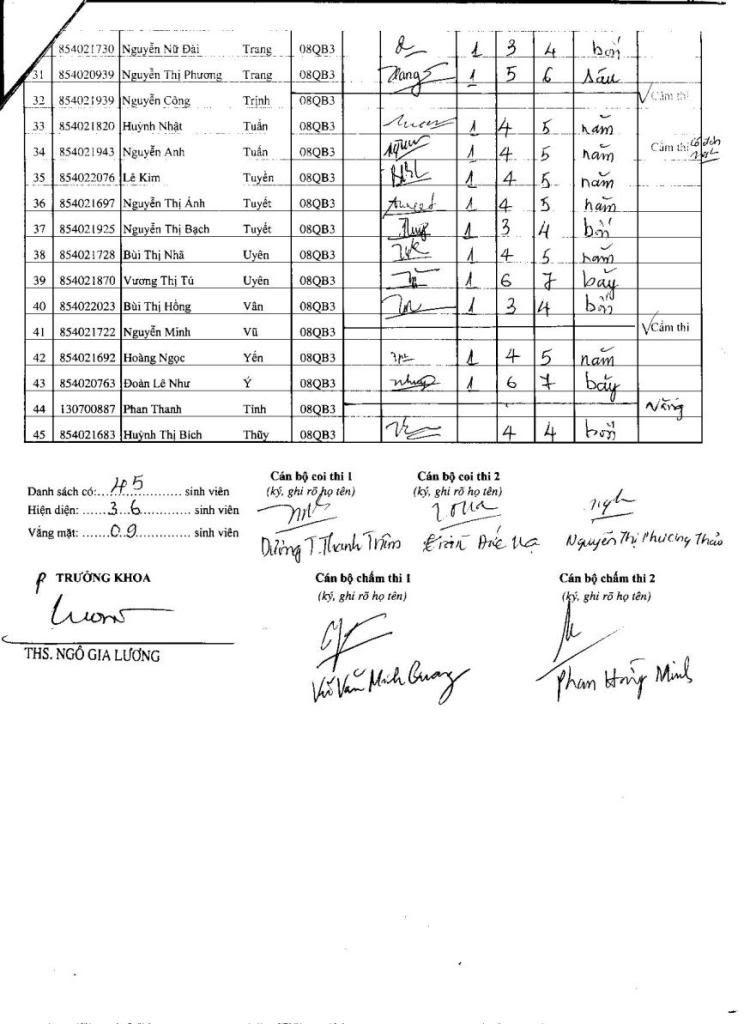 854021730 Nguyễn Nữ Đài Trang 08QB3 1 3 4 bốn
31 854020939 Nguyễn Thị Phương Trang 08QB3 Trang 1 5 6 sáu
32 854021939 Nguyễn Công Trịnh 08QB3 Cấm thi
33 854021820 Huỳnh Nhật Tuấn 08QB3 1 4 5 năm
34 854021943 Nguyễn Anh Tuấn 08QB3 1 4 5 năm Cấm thi
35 854022076 Lê Kim Tuyền 08QB3 1 4 5 năm
36 854021697 Nguyễn Thị Ánh Tuyết 08QB3 1 4 5 năm
37 854021925 Nguyễn Thị Bạch Tuyết 08QB3 1 3 4 bốn
38 854021728 Bùi Thị Nhã Uyên 08QB3 1 4 5 năm
39 854021870 Vương Thị Tú Uyên 08QB3 1 6 7 bảy
40 854022023 Bùi Thị Hồng Vân 08QB3 1 3 4 bốn
41 854021722 Nguyễn Minh Vũ 08QB3 Cấm thi
42 854021692 Hoàng Ngọc Yến 08QB3 1 4 5 năm
43 854020763 Đoàn Lê Như Ý 08QB3 1 6 7 bảy
44 130700887 Phan Thanh Tính 08QB3 Vắng
45 854021683 Huỳnh Thị Bích Thủy 08QB3 4 4 bốn
Cán bộ coi thi 1 Cán bộ coi thi 2
Danh sách có:....45............ sinh viên (ký, ghi rõ họ tên) (ký, ghi rõ họ tên)
Hiện diện: .....36............ sinh viên
Vắng mặt: ......09............ sinh viên
Dương T. Thanh Trâm Nguyễn Thị Phương Thảo
TRƯỞNG KHOA Cán bộ chấm thi 1 Cán bộ chấm thi 2
(ký, ghi rõ họ tên) (ký, ghi rõ họ tên)
THS. NGÔ GIA LƯƠNG
Vũ Văn Minh Quang Phan Hồng Minh